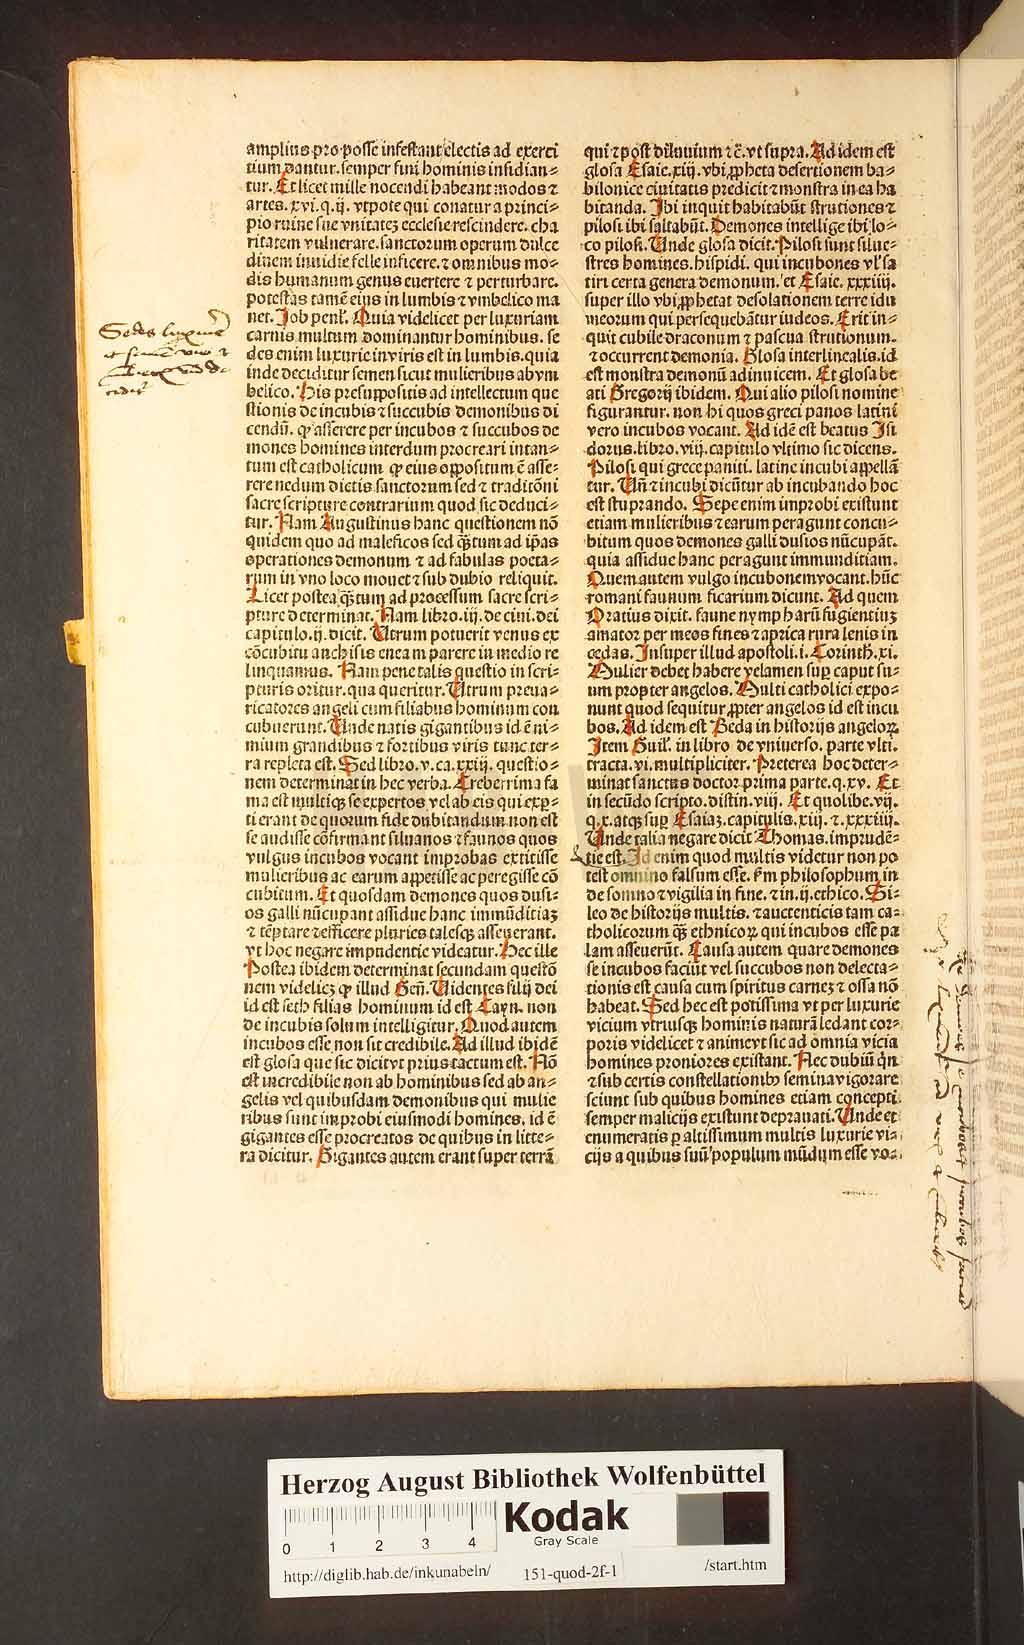 amplius pro posse̅ infestant electis ad exerci
tium dantur. semper sini hominis insidian⸗
tur. Et licet mille nocendi habeant modos ⁊
artes. xvi. q. ij. vtpote qui conatur a princi⸗
pio ruine sue vnitateȝ ecclesie rescindere. cha
ritatem vulnerare. sanctorum operum dulce
dinem inuidie felle inficere. ⁊ omnibus mo⸗
dis humanum genus euertere ⁊ perturbare.
potestas tame̅ eius in lumbis ⁊ vmbelico ma
net. Job penl̕. Quia videlicet per luxuriam
carnis multum dominantur hominibus. se
des enim luxurie in viris est in lumbis. quia
inde deciditur semen sicut mulieribus ab vm
belico. His presuppositis ad intellectum que
stionis de incubis ⁊ succubis demonibus di
cendu̅. ꝙ asserere per incubos ⁊ succubos de
mones homines interdum procreari intan⸗
tum est catholicum ꝙ eius oppositum e̅ asse⸗
rere nedum dictis sanctorum sed ⁊ tradito̅ni
sacre scripture contrarium quod sic deduci⸗
tur. Nam Augustinus hanc questionem no̅
quidem quo ad maleficos sed qȝtum ad ip̅as
operationes demonum ⁊ ad fabulas poeta⸗
rum in vno loco mouet ⁊ sub dubio reliquit.
Licet postea qȝtum ad processum sacre scri⸗
pture determinat. Nam libro. iij. de ciui. dei
capitulo. ij. dicit. Utrum potuerit venus ex
co̅cubitu anchisis eneam parere in medio re
linquamus. Nam pene talis questio in scri⸗
pturis oritur. qua queritur. Utrum preua⸗
ricatores angeli cum filiabus hominum con
cubuerunt. Unde natis gigantibus id e̅ ni⸗
mium grandibus ⁊ fortibus viris tunc ter⸗
ra repleta est. Sed libro. v. ca. xxiij. questio⸗
nem determinat in hec verba. Creberrima fa
ma est multiqꝫ se expertos vel ab eis qui exp⸗
ti erant de quorum fide dubitandum non est
se audisse co̅firmant siluanos ⁊ faunos quos
vulgus incubos vocant improbas extitisse
mulieribus ac earum appetisse ac peregisse co̅
cubitum. Et quosdam demones quos dusi⸗
os galli nu̅cupant assidue hanc immu̅ditiaȝ
⁊ te̅ptare ⁊ efficere plures talesqꝫ asseuerant.
vt hoc negare impudentie videatur. Hec ille
Postea ibidem determinat secundam questo̅
nem videliceȝ ꝙ illud Gen̅. Videntes filij dei
id est seth filias hominum id est Cayn. non
de incubis solum intelligitur. Quod autem
incubos esse non sit credibile. Ad illud ibide̅
est glosa que sic dicit vt prius tactum est. No̅
est incredibile non ab hominibus sed ab an⸗
gelis vel quibusdam demonibus qui mulie
ribus sunt improbi eiusmodi homines. id e̅
gigantes esse procreatos de quibus in litte⸗
ra dicitur. Gigantes autem erant super terra̅
qui ⁊ post diluuium ⁊ c̅. vt supra. Ad idem est
glosa Esaie. xiij. vbi ꝓpheta desertionem ba⸗
bilonice ciuitatis predicit ⁊ monstra in ea ha
bitanda. Ibi inquit habitabu̅t strutiones ⁊
pilosi ibi saltabu̅t. Demones intellige ibi lo⸗
co pilosi. Unde glosa dicit. Pilosi sunt silue⸗
stres homines. hispidi. qui incubones vl̕ sa
tiri certa genera demonum. et Esaie. xxxiiij.
super illo vbi ꝓphetat desolationem terre idu
meorum qui persequeba̅tur iudeos. Erit in⸗
quit cubile draconum ⁊ pascua strutionum.
⁊ occurrent demonia. Glosa interlinealis. id
est monstra demonu̅ adinuicem. Et glosa be
ati Gregorij ibidem. Qui alio pilosi nomine
figurantur. non hi quos greci panos latini
vero incubos vocant. Ad ide̅ est beatus Isi
dorus. libro. viij. capitulo vltimo sic dicens.
Pilosi qui grece paniti. latine incubi appella̅
tur. Un̅ ⁊ incubi dicu̅tur ab incubando hoc
est stuprando. Sepe enim improbi existunt
etiam mulieribus ⁊ earum peragunt concu⸗
bitum quos demones galli dusios nu̅cupa̅t.
quia assidue hanc peragunt immunditiam.
Quem autem vulgo incubonem vocant. hu̅c
romani faunum ficarium dicunt. Ad quem
Oratius dixit. faune nympharu̅ fugientiuȝ
amator per meos fines ⁊ aprica rura lenis in
cedas. Insuper illud apostoli. i. Corinth. xi.
Mulier debet habere velamen sup caput su⸗
um propter angelos. Multi catholici expo⸗
nunt quod sequitur ꝓpter angelos id est incu
bos. Ad idem est Beda in historijs angeloꝝ.
Item Guil̕. in libro de vniuerso. parte vlti.
tracta. vi. multipliciter. Preterea hoc deter⸗
minat sanctus doctor prima parte. q. xv. Et
in secu̅do scripto. distin. viij. Et quolibe. vij.
q. x. atqꝫ sup Esaiaȝ. capitulis. xiij. ⁊. xxxiiij.
Unde talia negare dicit Thomas. imprude̅⸗
tie est. Id enim quod multis videtur non po
test omnino falsum esse. s̅m philosophum in
de somno ⁊ vigilia in fine. ⁊ in. ij. ethico. Si⸗
leo de historijs multis. ⁊ auctenticis tam ca⸗
tholicorum qȝ ethnicoꝝ qui incubos esse pa
lam asseueru̅t. Causa autem quare demones
se incubos faciu̅t vel succubos non delecta⸗
tionis est causa cum spiritus carneȝ ⁊ ossa no̅
habeat. Sed hec est potissima vt per luxurie
vicium vtriusqꝫ hominis natura̅ ledant cor⸗
poris videlicet ⁊ anime vt sic ad omnia vicia
homines proniores existant. Nec dubiu̅ qn̅
⁊ sub certis constellationibꝰ semina vigorare
sciunt sub quibus homines etiam concepti
semper malicijs existunt deprauati. Unde et
enumeratis p altissimum multis luxurie vi⸗
cijs a quibus suu̅ populum mu̅dum esse vo⸗
Herzog August Bibliothek Wolfenbüttel
0 1 2 3 4
Kodak
Gray Scale
http://diglib.hab.de/inkunabeln/ 151-quod-2f-1 /start.htm